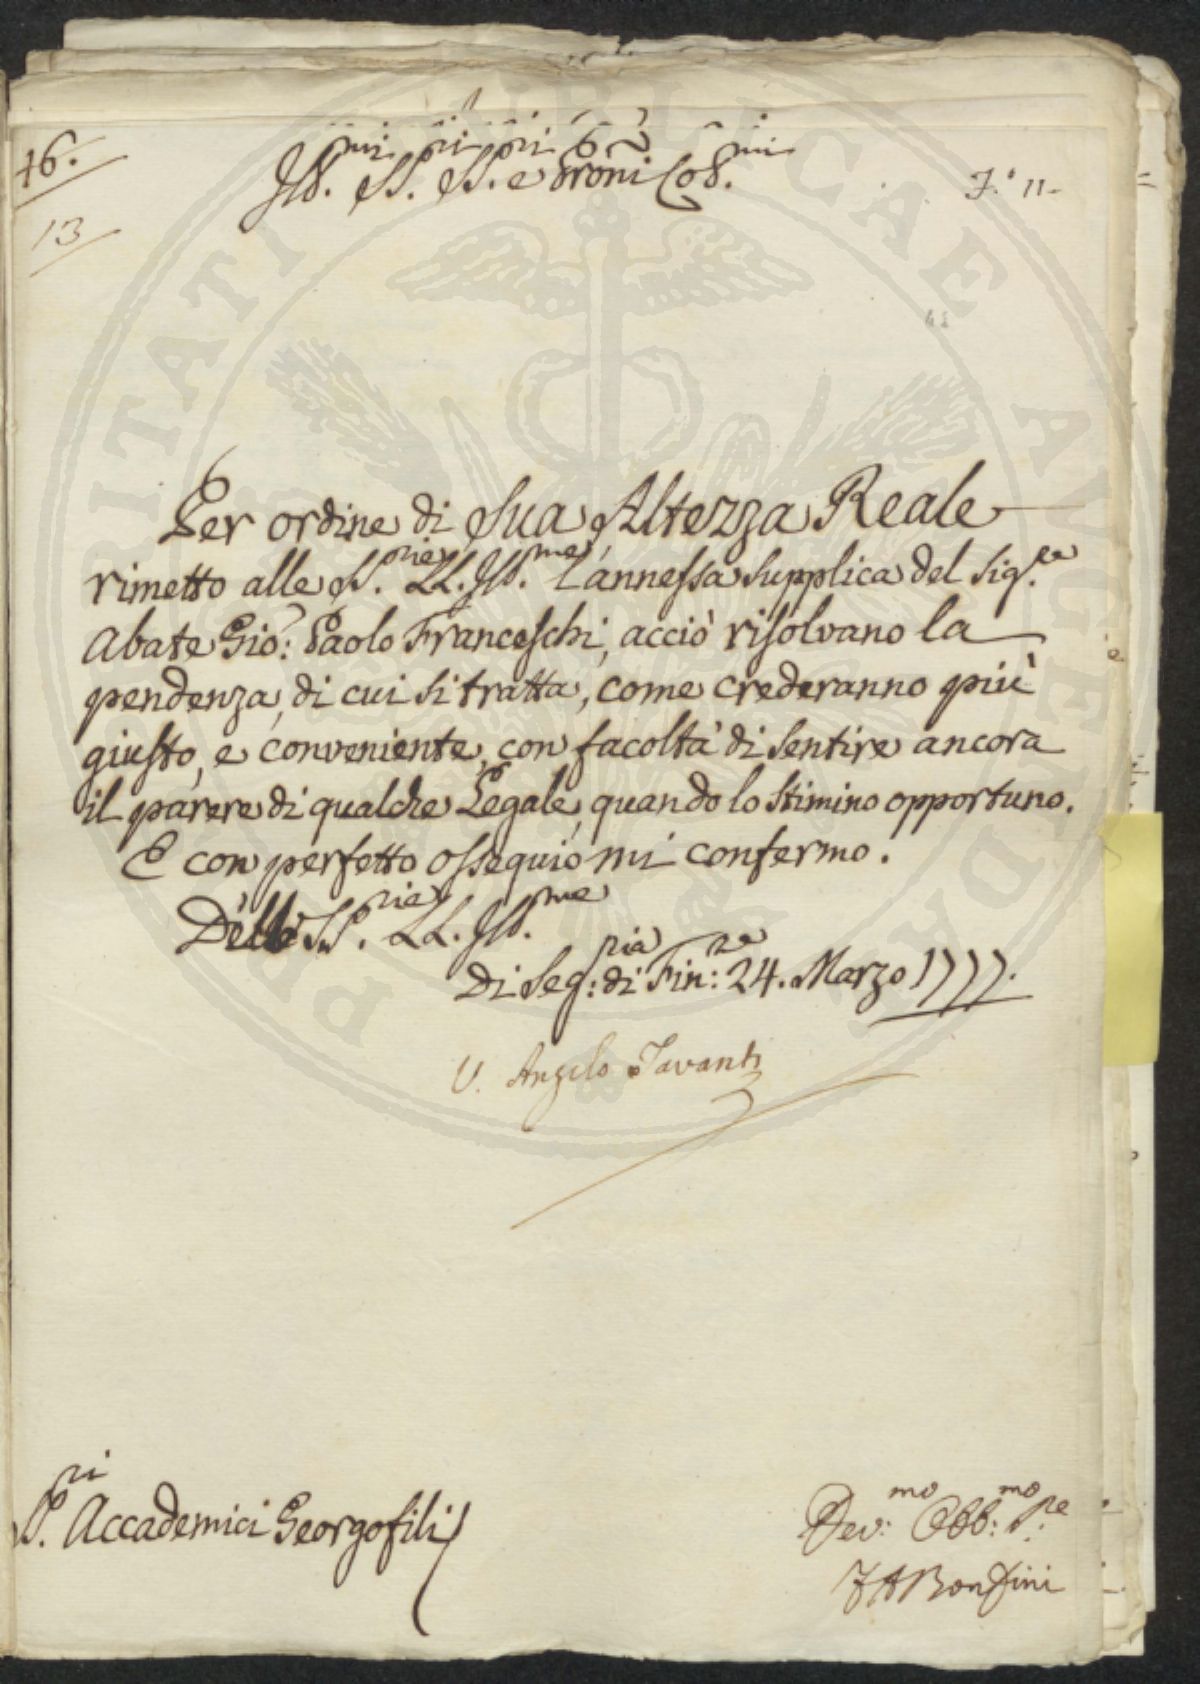 46.
13
Ill.mi SS.ri SS.ri e Prôni Col.mi
I.° 11-
42
Per ordine di Sua Altezza Reale
rimetto alle SS.rie LL. Ill.me l'annessa supplica del Sig.re
Abate Gio: Paolo Franceschi, acciò risolvano la
pendenza, di cui si tratta, come crederanno più
giusto, e conveniente, con facoltà di sentire ancora
il parere di qualche Legale, quando lo stimino opportuno.
E con perfetto ossequio mi confermo.
Delle SS.rie LL. Ill.me
Di Seg:ria di Fin:ze 24. Marzo 1777.
V. Angelo Tavanti
SS.ri Accademici Georgofili
Dev:mo Obb:mo S:re
F A Bonfini
PROSPERITATI PUBLICAE AUGENDAE